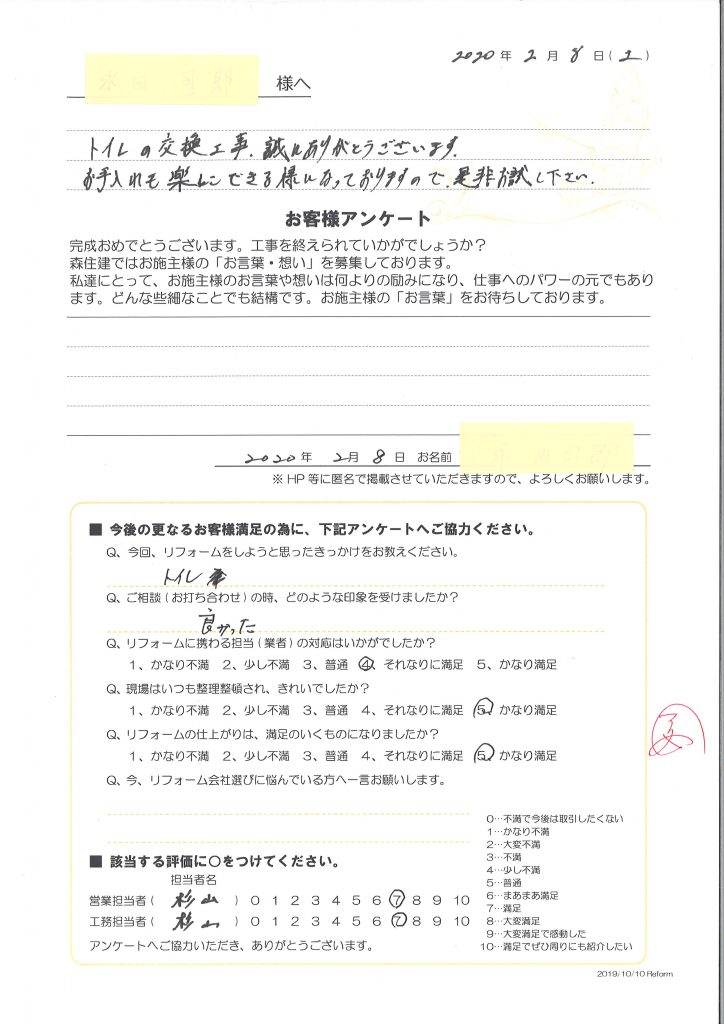 2020年 2月 8日(土)
様へ
トイレの交換工事、誠にありがとうございます。
お手入れも楽にできる様になっておりますので、是非お試し下さい。
お客様アンケート
完成おめでとうございます。工事を終えられていかがでしょうか?
森住建ではお施主様の「お言葉・想い」を募集しております。
私達にとって、お施主様のお言葉や想いは何よりの励みになり、仕事へのパワーの元でもあり
ます。どんな些細なことでも結構です。お施主様の「お言葉」をお待ちしております。
2020年 2月 8日 お名前
※HP等に匿名で掲載させていただきますので、よろしくお願いします。
■ 今後の更なるお客様満足の為に、下記アンケートへご協力ください。
Q、今回、リフォームをしようと思ったきっかけをお教えください。
トイレ
Q、ご相談(お打ち合わせ)の時、どのような印象を受けましたか?
良かった
Q、リフォームに携わる担当(業者)の対応はいかがでしたか?
1、かなり不満 2、少し不満 3、普通 4、それなりに満足 5、かなり満足
Q、現場はいつも整理整頓され、きれいでしたか?
1、かなり不満 2、少し不満 3、普通 4、それなりに満足 5、かなり満足
Q、リフォームの仕上がりは、満足のいくものになりましたか?
1、かなり不満 2、少し不満 3、普通 4、それなりに満足 5、かなり満足
Q、今、リフォーム会社選びに悩んでいる方へ一言お願いします。
■ 該当する評価に○をつけてください。
担当者名
営業担当者( 杉山 ) 0 1 2 3 4 5 6 7 8 9 10
工務担当者( 杉山 ) 0 1 2 3 4 5 6 7 8 9 10
アンケートへご協力いただき、ありがとうございます。
0…不満で今後は取引したくない
1…かなり不満
2…大変不満
3…不満
4…少し不満
5…普通
6…まあまあ満足
7…満足
8…大変満足
9…大変満足で感動した
10…満足でぜひ周りにも紹介したい
2019/10/10 Reform